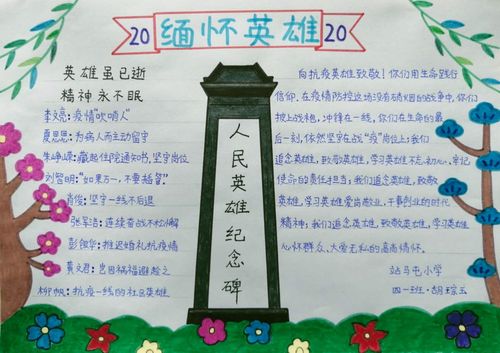 20 缅怀英雄 20
英雄虽已逝
精神永不眠
李文亮：疫情"吹哨人"
夏思思：为病人而主动留守
朱峥嵘：藏起住院通知书，坚守岗位
刘智明："如果万一，不要插管。"
肖俊：坚守一线不后退
张军浩：连续奋战不松懈
彭银华：推迟婚礼抗疫情
黄文君：岂因祸福避趋之
柳帆：抗疫一线的社区英雄
人民英雄纪念碑
向抗疫英雄致敬！你们用生命践行
信仰。在疫情防控这场没有硝烟的战争中，你们
披上战袍，冲锋在一线，你们在生命的最
后一刻，依然坚守在战"疫"岗位上；我们
追念英雄，致敬英雄，学习英雄不忘初心、牢记
使命的责任担当；我们追念英雄，致敬
英雄，学习英雄爱岗敬业、干事创业的时代
精神；我们追念英雄，致敬英雄，学习英雄
心怀群众、大爱无私的高尚情怀。
站马屯小学
四一班·胡琮玉